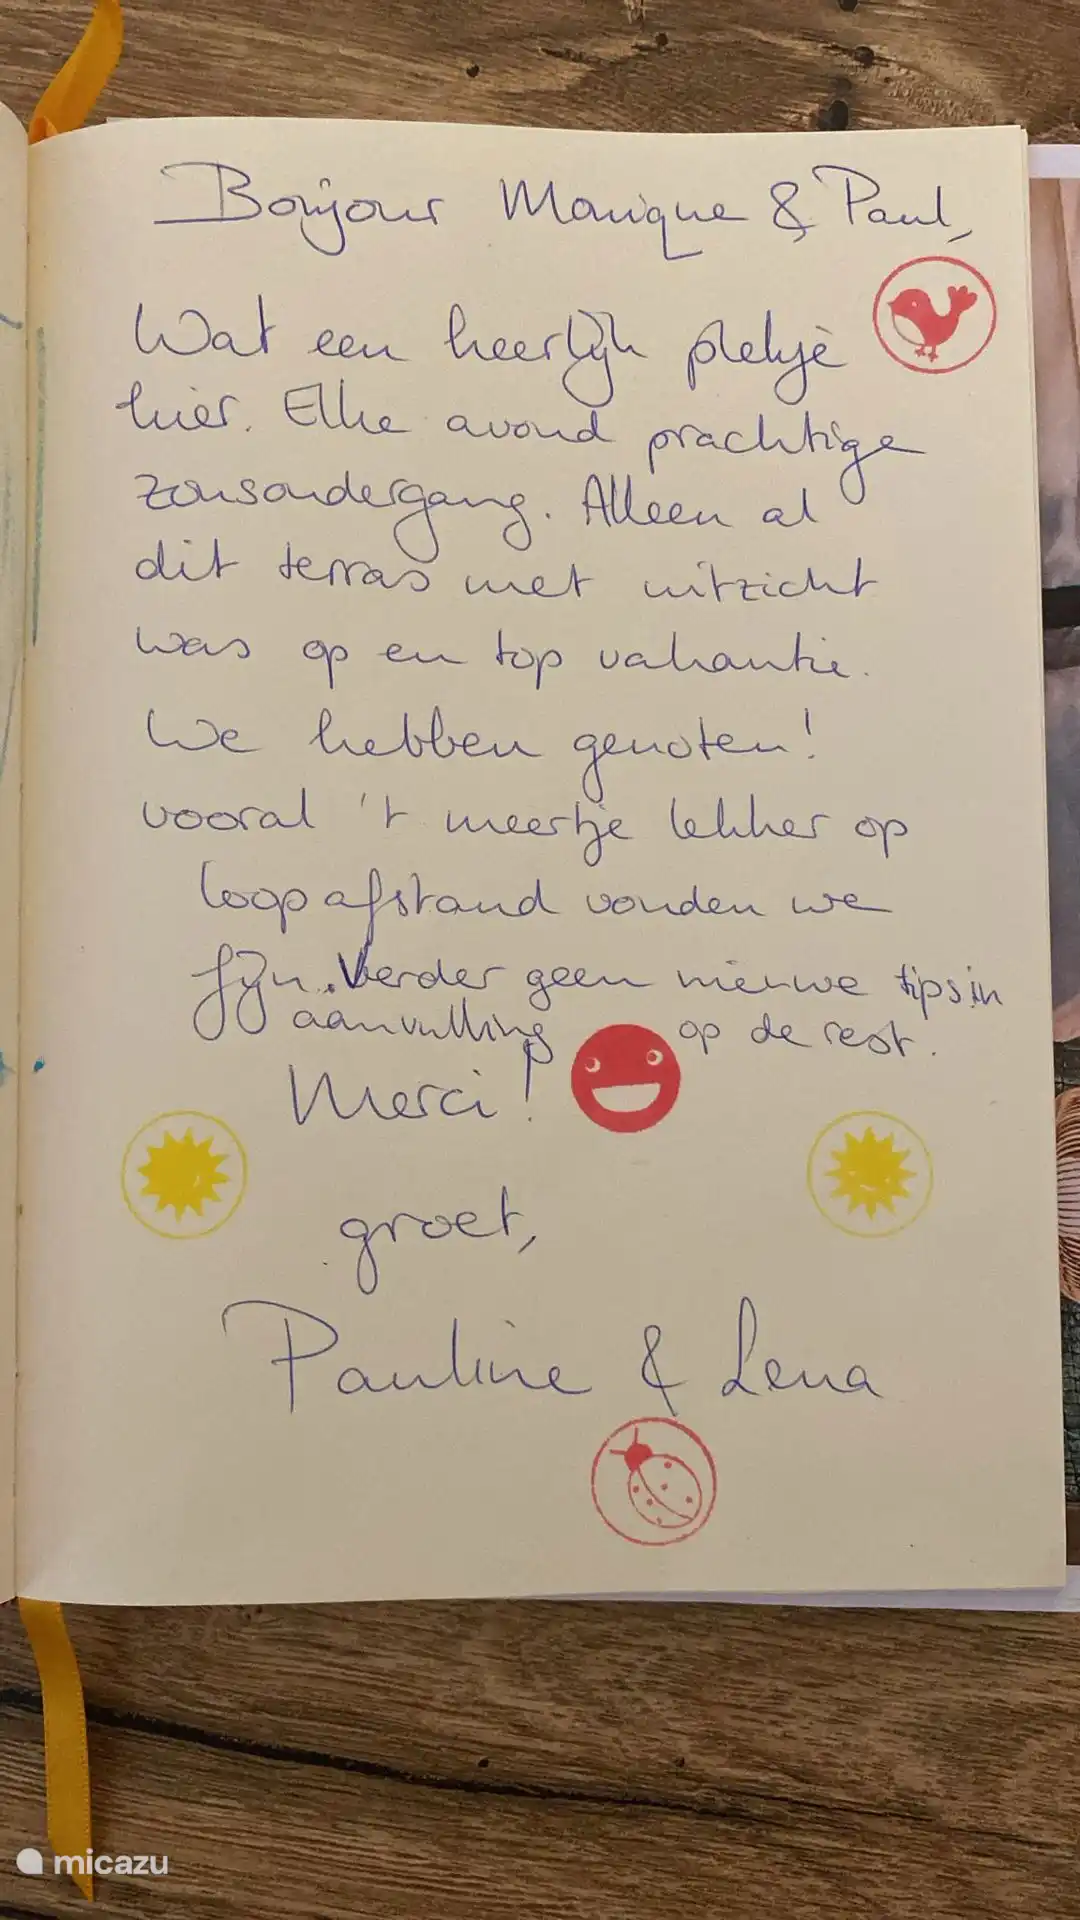 Bonjour Monique & Paul,
Wat een heerlijk plekje
hier. Elke avond prachtige
zonsondergang. Alleen al
dit terras met uitzicht
was op en top vakantie.
We hebben genoten!
vooral 't meertje lekker op
loopafstand vonden we
fijn. Verder geen nieuwe tips in
aanvulling op de rest.
Merci!
groet,
Pauline & Lena
micazu